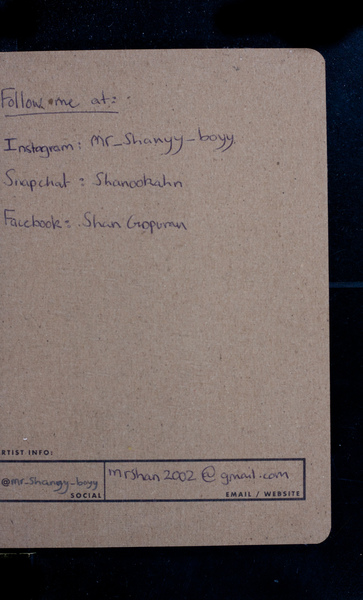 Follow me at:
Instagram: Mr_Shanyy_boyy
Snapchat: Shanookahn
Facebook: Shan Gopuran
RTIST INFO:
@mr_Shanyy_boyy
SOCIAL
mrshan2002@gmail.com
EMAIL / WEBSITE